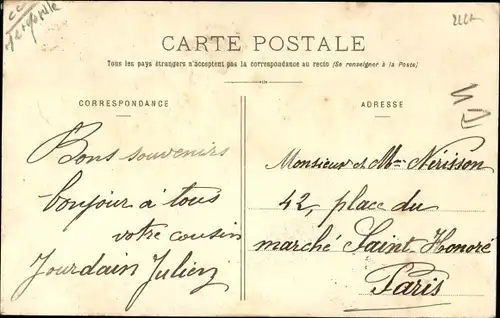 CARTE POSTALE
Tous les pays étrangers n'acceptent pas la correspondance au recto (Se renseigner à la Poste)
CORRESPONDANCE
Bons souvenirs
bonjour à tous
votre cousin
Jourdain Julien
ADRESSE
Monsieur et Mme Nérisson
42, place du
marché Saint-Honoré
Paris